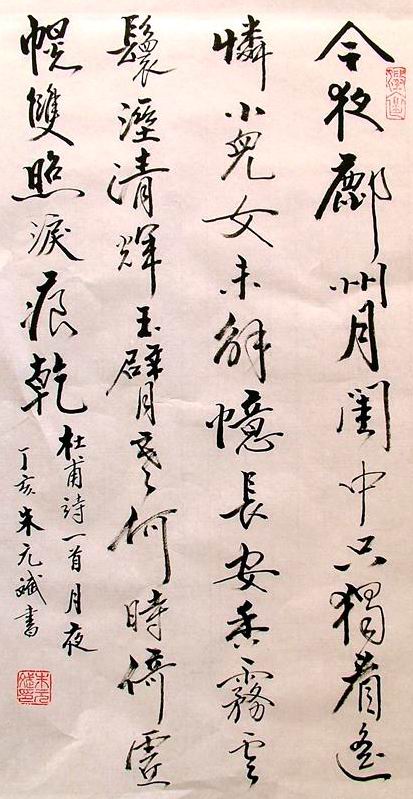 今夜鄜州月閨中只獨看遙
憐小兒女未解憶長安香霧雲
鬟溼清輝玉臂寒何時倚虛
幌雙照淚痕乾
杜甫詩一首月夜
丁亥朱元斌書